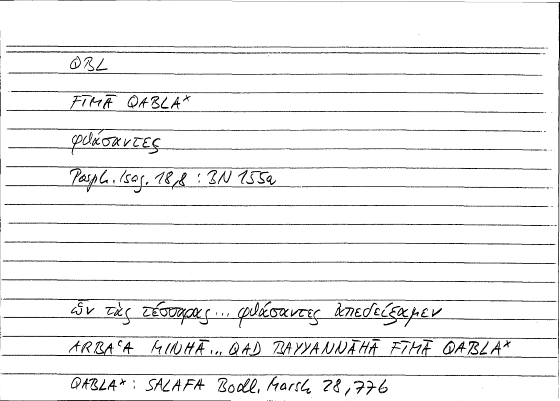 QBL
FĪMĀ QABLA*
φθάσαντες
Porph. Isag. 18,8 : BN 155a
ὧν τὰς τέσσαρας... φθάσαντες ἀπεδείξαμεν
ARBAʿA MINHĀ... QAD BAYYANNĀHĀ FĪMĀ QABLA*
QABLA* : SALAFA Bodl. Marsh 28,77b